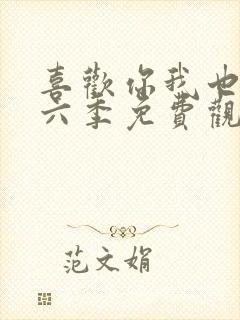 喜歡你我也
六季免費觀
范文娟